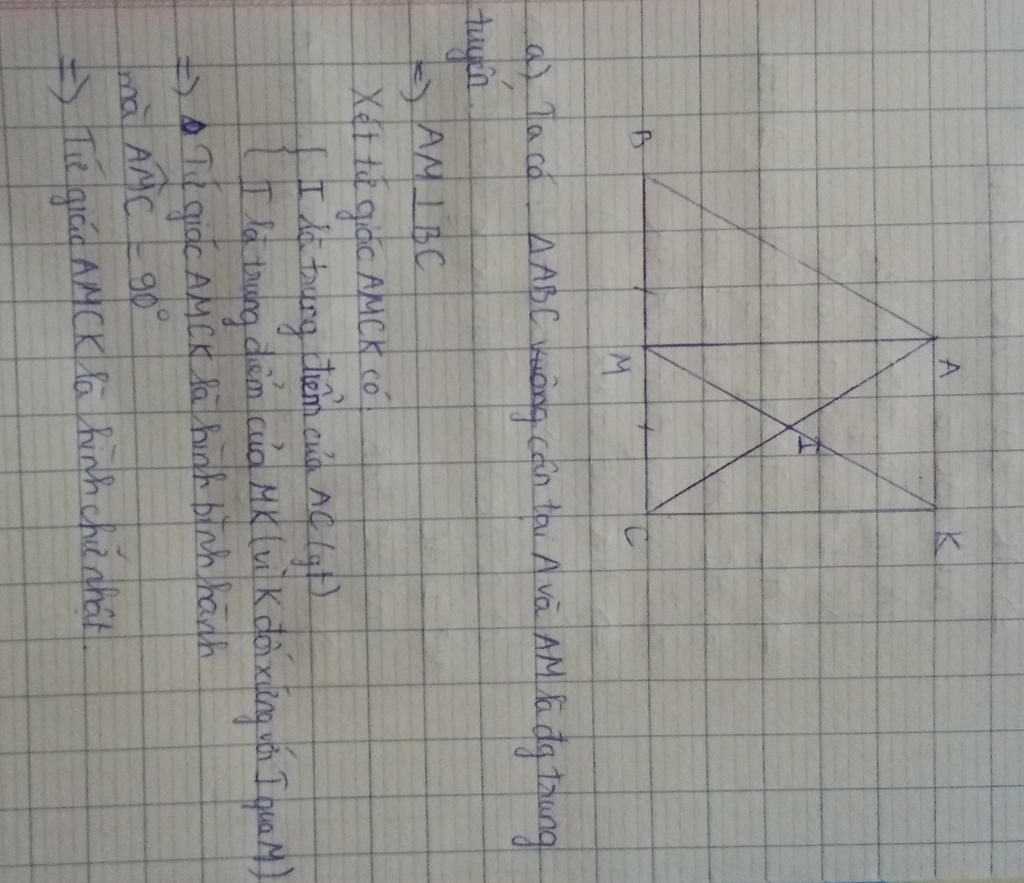 A K
I
B M C
a) Ta có ΔABC vuông cân tại A và AM là đg trung
tuyến.
=> AM ⊥ BC
Xét tứ giác AMCK có:
{ I là trung điểm của AC (gt)
{ I là trung điểm của MK (vì K đối xứng với I qua M)
=> Tứ giác AMCK là hình bình hành
mà AMC = 90°
=> Tứ giác AMCK là hình chữ nhật.